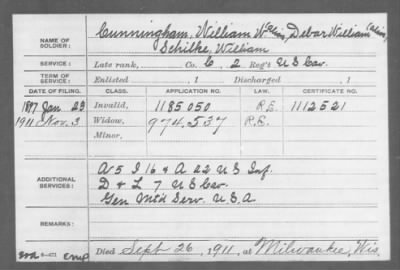 Cunningham, William W alias, Debar William (alias),
NAME OF SOLDIER:
Schilke, William
SERVICE: Late rank, Co. C, 2 Reg't U S Cav.
TERM OF SERVICE: Enlisted , 1 Discharged , 1
DATE OF FILING. CLASS. APPLICATION NO. LAW. CERTIFICATE NO.
1897 Jan 29 Invalid, 1185050 R.E. 1112521
1911 Nov. 3 Widow, 974,537 R.R.
Minor,
ADDITIONAL SERVICES:
A 5 I 16 & A 22 U S Inf.
D & L 7 U S Cav.
Gen Mt'd Serv. U.S.A.
REMARKS:
Died Sept 26, 1911, at Milwaukee, Wis.